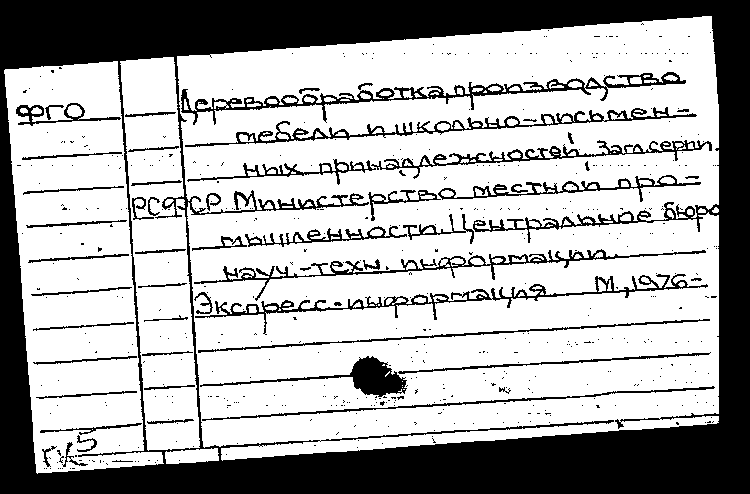 ФГО Деревообработка, производство
мебели и школьно-письмен-
ных принадлежностей. Загл. серии.
РСФСР. Министерство местной про-
мышленности. Центральное бюро
науч.-техн. информации.
Экспресс-информация. М., 1976-
ГК5